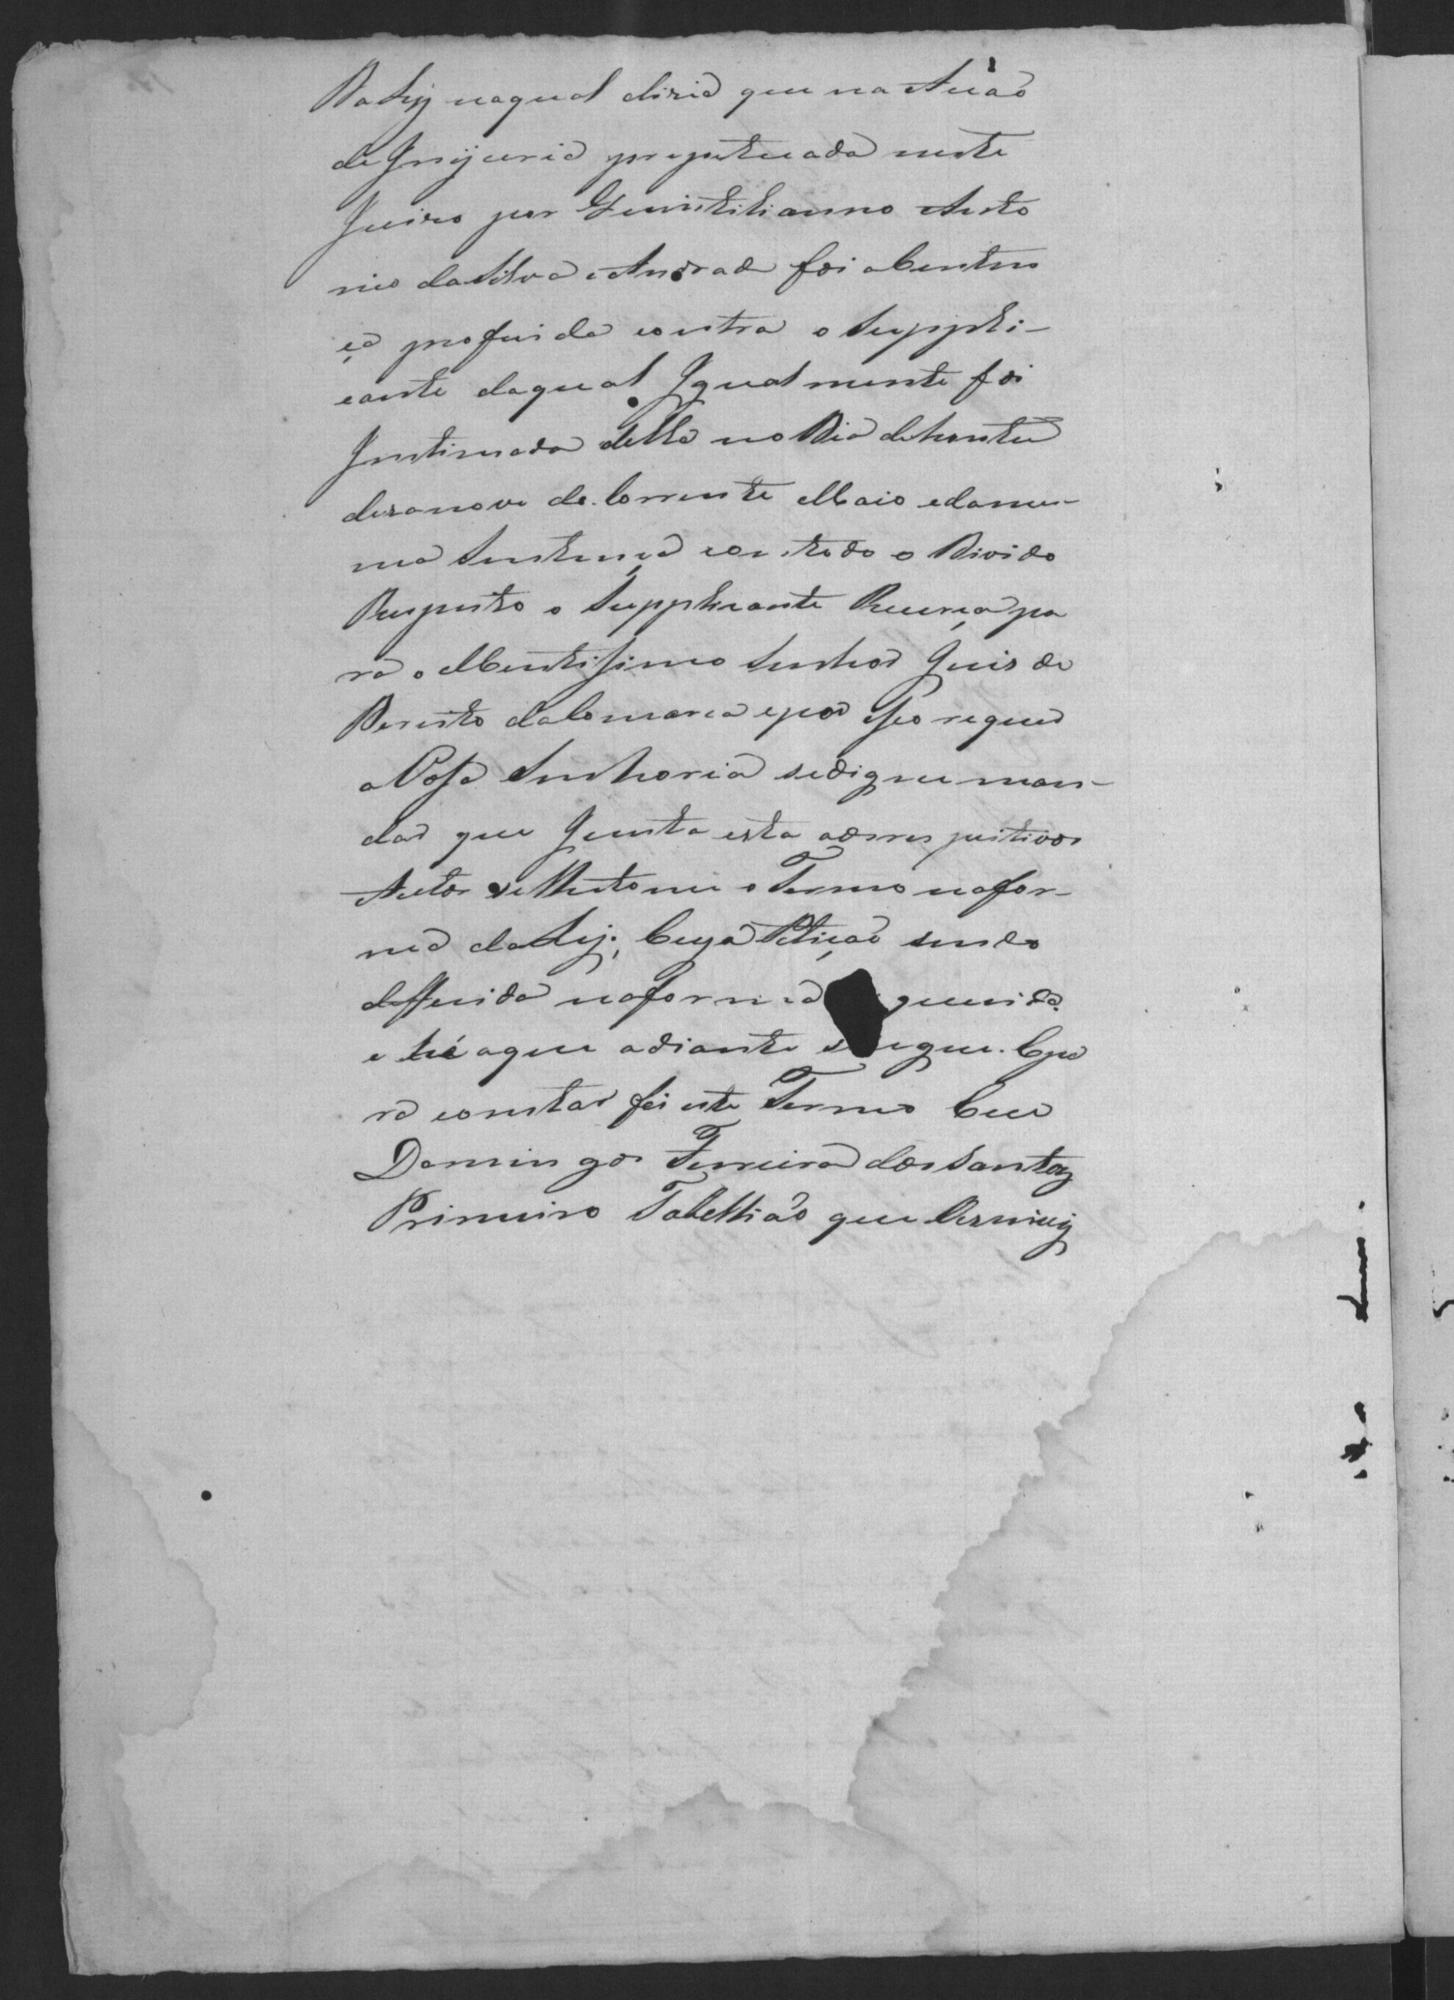 Da Ley naqual dizia que na Aução
de Injuria prepetuada neste
Juizo por Quintilianno Anto
nio da Silva Andrade foi a Centen
ça proferida contra o Suppli-
cante da qual Igualmente foi
Intimado della no Dia de hontem
dezanove do Corrente Maio e da mes-
ma Sentença com todo o Divido
Respeito o Supplicante Recurça pa
ra o Meretissimo Senhor Juis de
Dereito da Comarca e por isso requer
a Vossa Senhoria se digne man-
dar que Junta esta aos respeitivos
Autos se lhe tome o Termo na for-
ma da Ley; Cuja Petição sendo
defferida na forma requerida
e hé aque adiante segue. E pa
ra constar fis este Termo Eeu
Domingos Ferreira dos Santos
Primeiro Tabellião que Escrivij